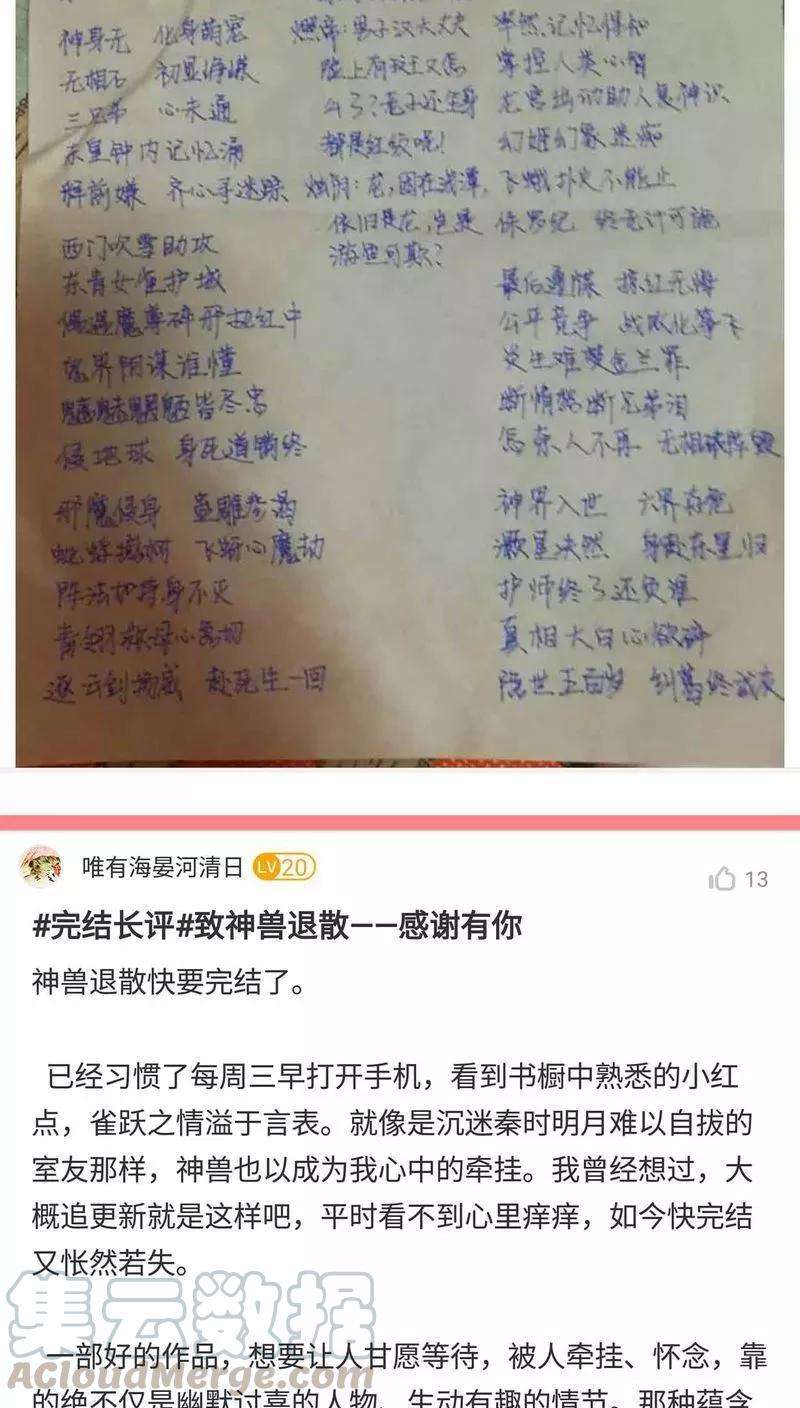 神身无 化身萌宠
无相石 初显端倪
三兄弟 心未通
东皇钟内记忆涌
释前嫌 齐心手迷踪
西门吹雪助攻
东青女催护城
偶遇魔尊碎开劫红中
鬼界阴谋谁懂
魑魅魍魉皆尽害
侵地球 身死道销终
邪魔侵身
飞蛾心魔劫
阵法加持身不灭
逐云剑扬威 赴死生一回
燃帝:男子汉大丈夫
陆上有我王又怎
么了?老子还全身
都是红纹呢!
烛阴:龙,困在浅滩,
依旧是龙,岂是
游鱼可欺?
记忆得知
掌控人类心智
龙宫出动助人复神识
幻姬幻象迷痴
飞蛾扑火不能止
侏罗纪 终无计可施
最后遭媒 掠红无悔
公平竞争
炎生难焚金兰罪
断情愁断兄弟泪
怎奈人不再 无相破阵毁
神界入世 六界存危
灏星决然 身赴东皇归
护师终了还负谁
真相大白心欲碎
隐世王百岁 纠葛终成灰
唯有海晏河清日 LV20
13
#完结长评#致神兽退散——感谢有你
神兽退散快要完结了。
已经习惯了每周三早打开手机，看到书橱中熟悉的小红
点，雀跃之情溢于言表。就像是沉迷秦时明月难以自拔的
室友那样，神兽也以成为我心中的牵挂。我曾经想过，大
概追更新就是这样吧，平时看不到心里痒痒，如今快完结
又怅然若失。
一部好的作品，想要让人甘愿等待，被人牵挂、怀念，靠
的绝不仅是幽默讨喜的人物、生动有趣的情节。那种蕴含
集云数据
AcloudMerge.com